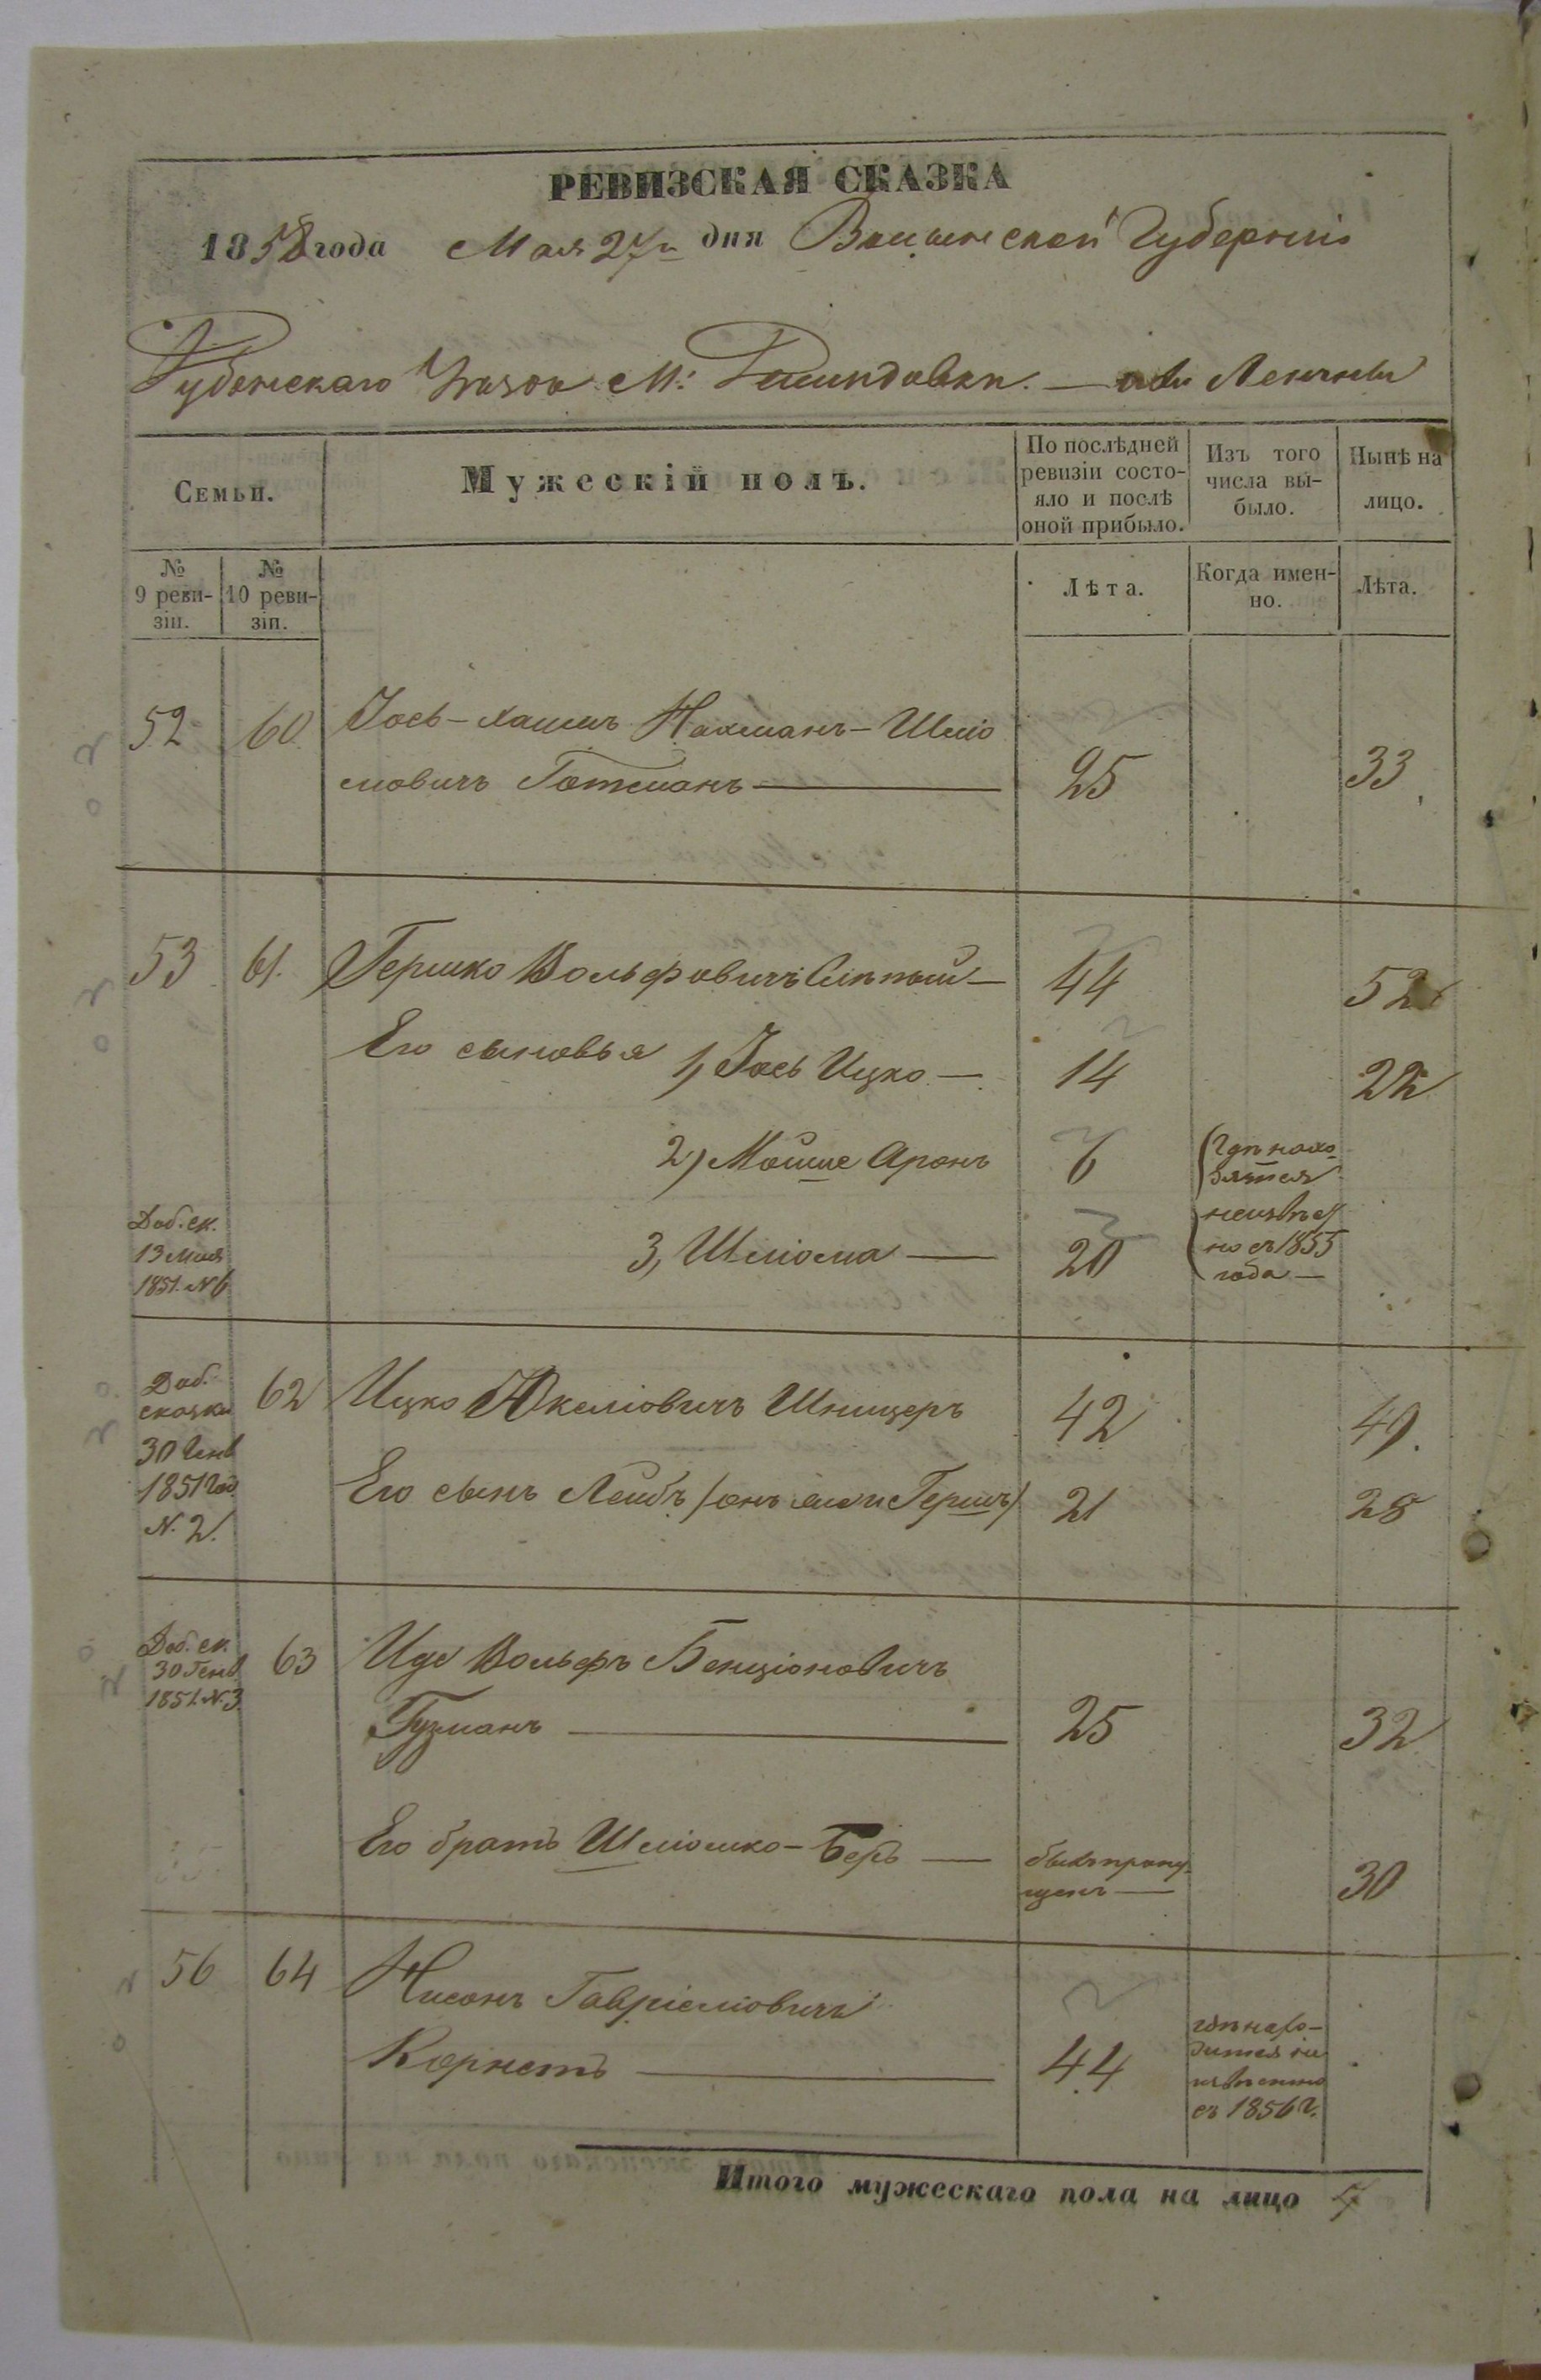 РЕВИЗСКАЯ СКАЗКА
1858 года Мая 27 дня Волынской Губерніи
Дубенскаго Уѣзда М:
Семьи.
Мужескій полъ.
По послѣдней ревизіи состо-
яло и послѣ
оной прибыло.
Изъ того
числа вы-
было.
Нынѣ на
лицо.
№
9 реви-
зіи.
№
10 реви-
зіи.
Лѣта.
Когда имен-
но.
Лѣта.
52 60 Іось-Хаимъ Нахманъ-Шліо
мовичъ Готманъ 25 33
53 61. Гершко Вольфовичъ 44 52
Его сыновья 1, Іось Ицко — 14 22
2) Мойше Аронъ 6
3, Шліома — 20
(Гдѣ нахо-
дятся
неизвѣст
но съ 1855
года —
Доб. ск.
13 Мая
1851. №6
Доб.
сказки
30 Генв
1851 год.
N. 2.
62 Ицко Юкеліовичъ Шницеръ 42 49.
Его сынъ Лейбъ /онъ же и Гершъ/ 21 28
Доб. ск.
30 Генв
1851. N. 3
63 Иде Вольфъ Бенціоновичъ
Гузманъ 25 32
Его братъ Шліомко-Беръ — былъ пропу-
щенъ — 30
56 64 Нисонъ Гавріеліовичъ
Корнетъ 44
гдѣ нахо-
дится не
извѣстно
съ 1856 г.
Итого мужескаго пола на лицо 7